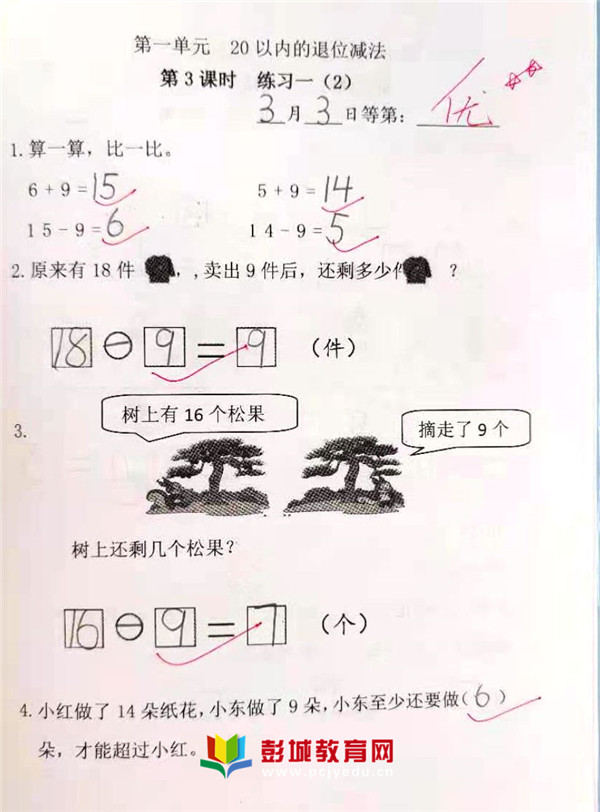 第一单元 20以内的退位减法
第3课时 练习一（2）
3月3日等第：优
1.算一算，比一比。
6+9=15 5+9=14
15-9=6 14-9=5
2.原来有18件，,卖出9件后，还剩多少件？
18 - 9 = 9 （件）
树上有16个松果
3.
摘走了9个
树上还剩几个松果？
16 - 9 = 7 （个）
4.小红做了14朵纸花，小东做了9朵，小东至少还要做(6)
朵，才能超过小红。
彭城教育网
www.pcjyedu.cn